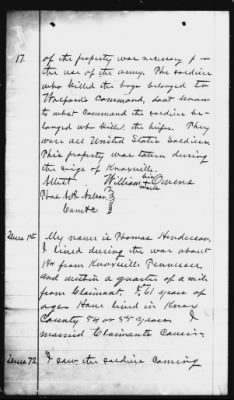 17. of the property was necessary for
the use of the army. The soldier
who killed the hogs belonged to
Wolford's Command, dont know
to what command the soldier be-
longed who killed the heifer. They
were all United States Soldiers
This property was taken during
the siege of Knoxville.
Attest William his Owens
mark
My name is Thomas Henderson
I lived during the war about
1¼ from Knoxville Tennessee,
and within a quarter of a mile
from Claimant. 61 years of
age. Have lived in Knox
County 54 or 55 years I
married Claimants Cousin.
I saw the soldiers coming